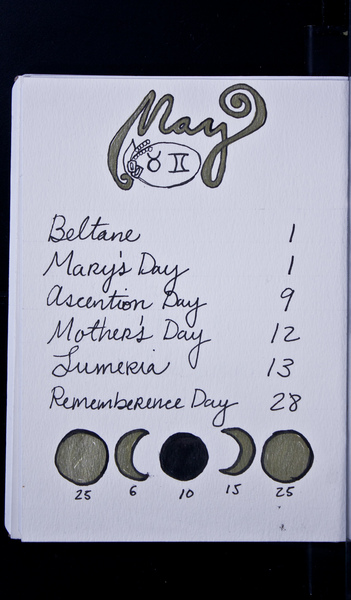 May
♉ ♊
Beltane 1
Mary's Day 1
Ascention Day 9
Mother's Day 12
Lumeria 13
Rememberence Day 28
25 6 10 15 25